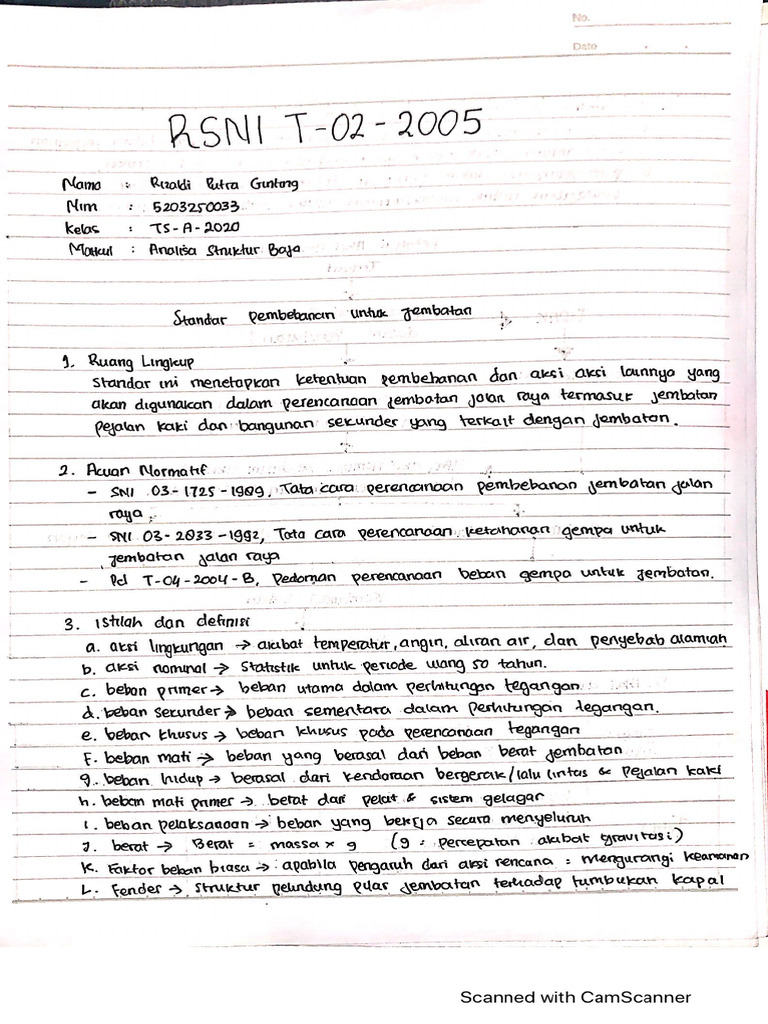 No.
Date
RSNI T-02-2005
Nama : Rizaldi Putra Guntang
Nim : 5203250033
Kelas : TS-A-2020
Matkul : Analisa Struktur Baja
Standar pembebanan untuk jembatan
1. Ruang Lingkup
Standar ini menetapkan ketentuan pembebanan dan aksi aksi lainnya yang
akan digunakan dalam perencanaan jembatan jalan raya termasuk jembatan
pejalan kaki dan bangunan sekunder yang terkait dengan jembatan.
2. Acuan Normatif
- SNI 03-1725-1989, Tata cara perencanaan pembebanan jembatan jalan
raya
- SNI 03-2833-1992, Tata cara perencanaan ketahanan gempa untuk
jembatan jalan raya
- Pd T-04-2004-B, Pedoman perencanaan beban gempa untuk jembatan.
3. Istilah dan definisi
a. aksi lingkungan → akibat temperatur, angin, aliran air, dan penyebab alamiah
b. aksi nominal → Statistik untuk periode ulang 50 tahun.
c. beban primer → beban utama dalam perhitungan tegangan
d. beban sekunder → beban sementara dalam perhitungan tegangan.
e. beban khusus → beban khusus pada perencanaan tegangan
F. beban mati → beban yang berasal dari beban berat jembatan
g. beban hidup → berasal dari kendaraan bergerak/lalu lintas & pejalan kaki
h. beban mati primer → berat dari pelat & sistem gelagar
i. beban pelaksanaan → beban yang bekerja secara menyeluruh
J. berat → Berat = massa x g (g = percepatan akibat gravitasi)
K. Faktor beban biasa → apabila pengaruh dari aksi rencana = mengurangi keamanan
L. Fender → struktur pelindung pilar jembatan terhadap tumbukan kapal
Scanned with CamScanner